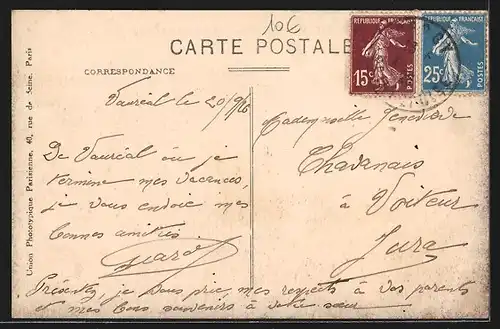 10€
CARTE POSTALE
CORRESPONDANCE
Vauréal le 20/9/26
De Vauréal où je
termine mes vacances,
je vous envoie mes
bonnes amitiés.
Présentez, je vous prie, mes respects à vos parents
et mes bons souvenirs à votre sœur
Mademoiselle Geneviève
Chavanais
à Voiteur
Jura
REPUBLIQUE FRANÇAISE
15c
POSTES
REPUBLIQUE FRANÇAISE
25c
POSTES
Union Phototypique Parisienne, 40, rue de Seine, Paris